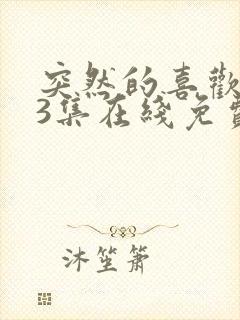 突然的喜歡
3集在线免費
沐笙箫